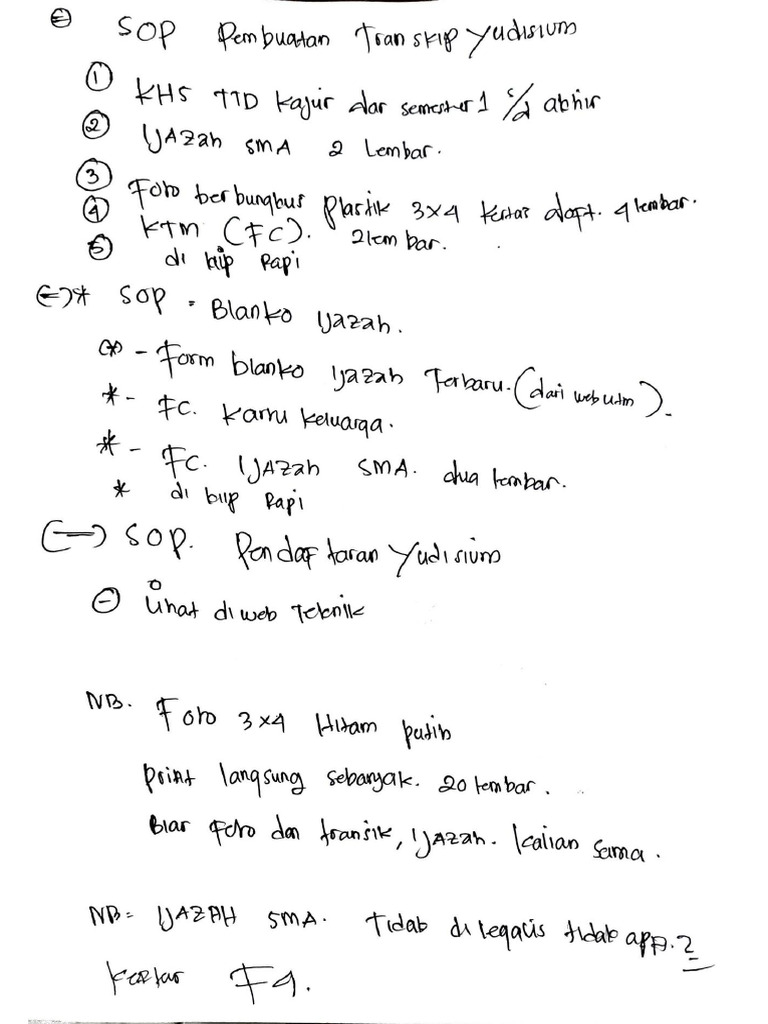 SOP Pembuatan Transkip Yudisium
① KHS TTD Kajur dar semester 1 s/d akhir
② IJAZah SMA 2 Lembar.
③ Foto berbungkus Plastik 3x4 kertas doft. 4 lembar.
④ KTM (FC). 2 lembar.
⑤ di klip Rapi
* SOP = Blanko Ijazah.
* - Form blanko Ijazah Terbaru. (dari web utm).
* - FC. Kartu keluarga.
* - FC. IJAZah SMA. dua lembar.
* di klip Rapi
(-) SOP. Pendaftaran Yudisium
⊖ Lihat di web Teknik
NB. Foto 3x4 Hitam putih
print langsung sebanyak. 20 lembar.
Biar foto dan transik, IJAZah. kalian sama.
NB = IJAZAH SMA. Tidak di legalis tidak apa.2
kertas F4.